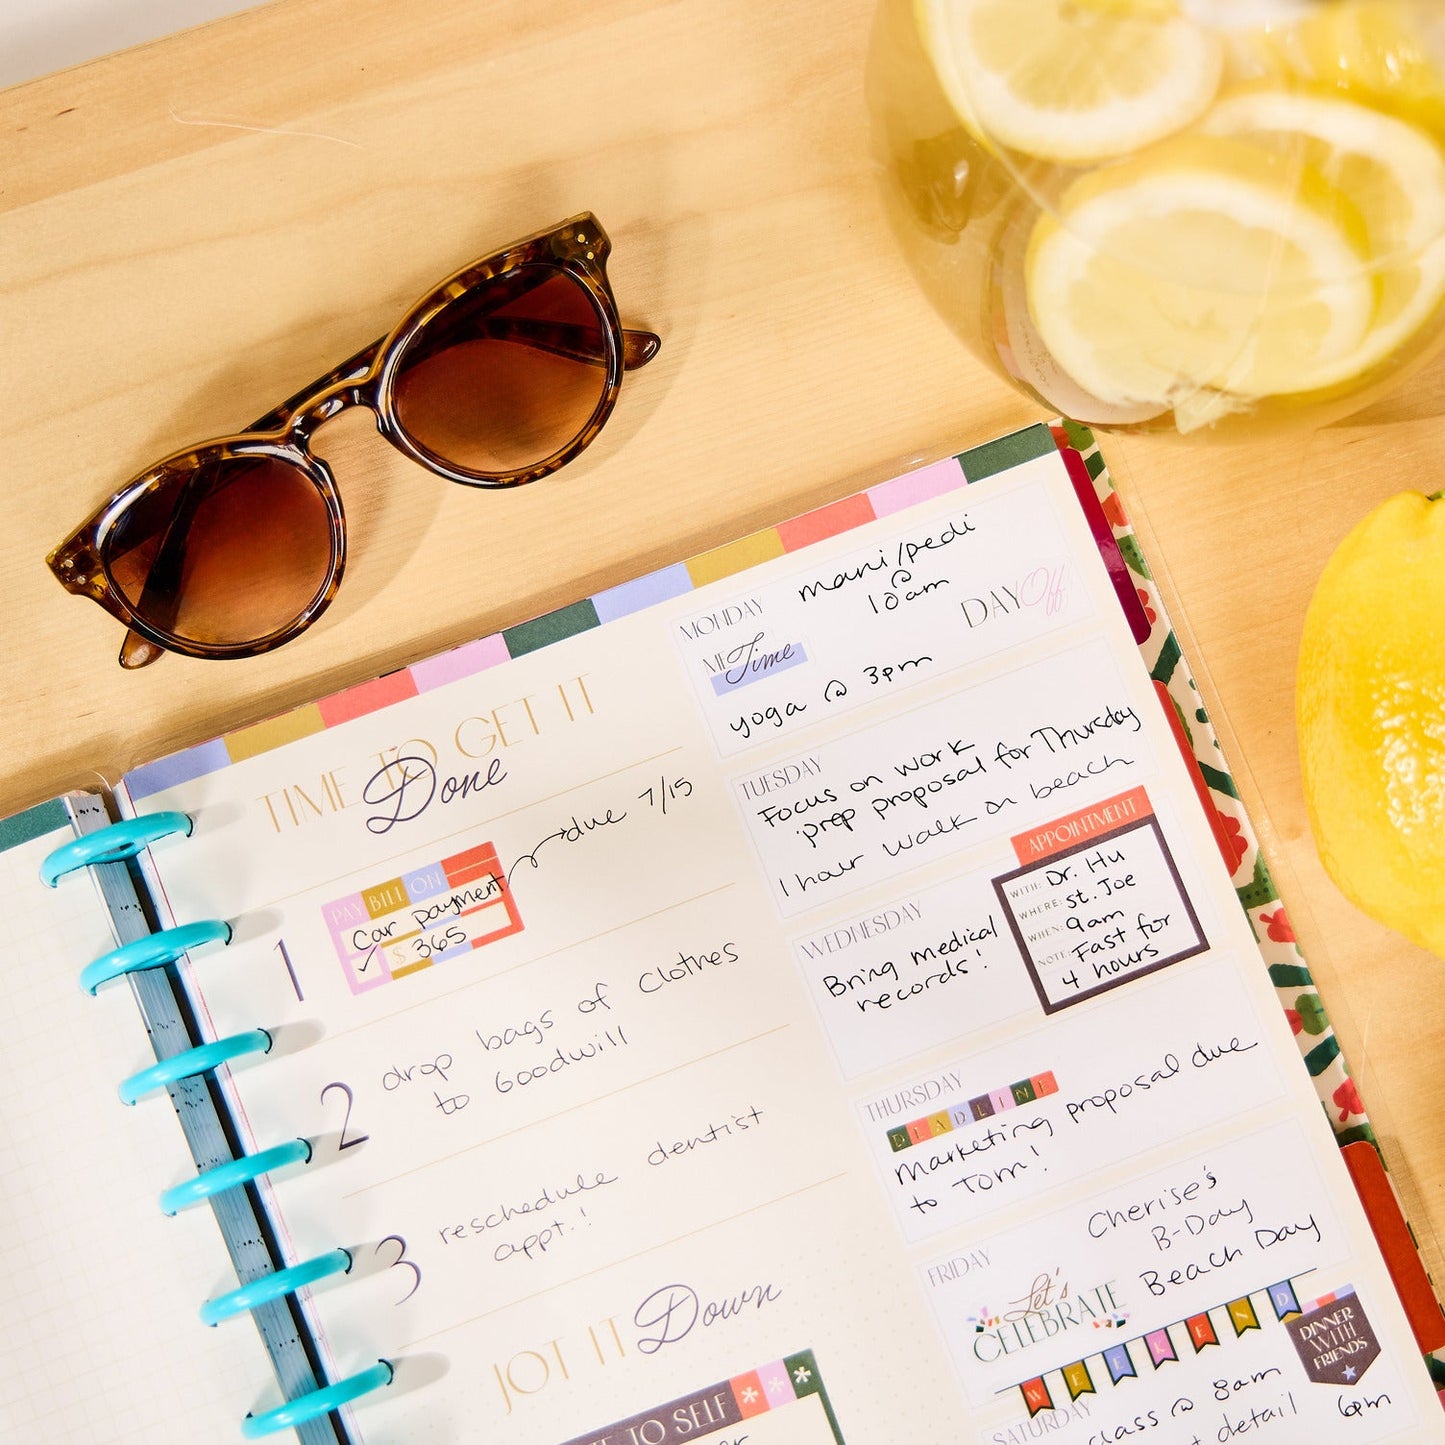 TIME TO GET IT
Done
1
PAY BILL ON
due 7/15
Car payment
✓ $ 365
2
drop bags of clothes
to Goodwill
3
reschedule dentist
appt.!
JOT IT Down
TO SELF
MONDAY
mani/pedi
@
10am
DAY Off
ME Time
yoga @ 3pm
TUESDAY
Focus on work
prep proposal for Thursday
1 hour walk on beach
WEDNESDAY
Bring medical
records!
APPOINTMENT
WITH: Dr. Hu
WHERE: St. Joe
WHEN: 9am
NOTE: Fast for
4 hours
THURSDAY
DEADLINE
Marketing proposal due
to Tom!
FRIDAY
Cherise's
B-Day
Beach Day
Let's
CELEBRATE
WEEKEND
SATURDAY
@ 8am
detail
DINNER
WITH
FRIENDS
6pm